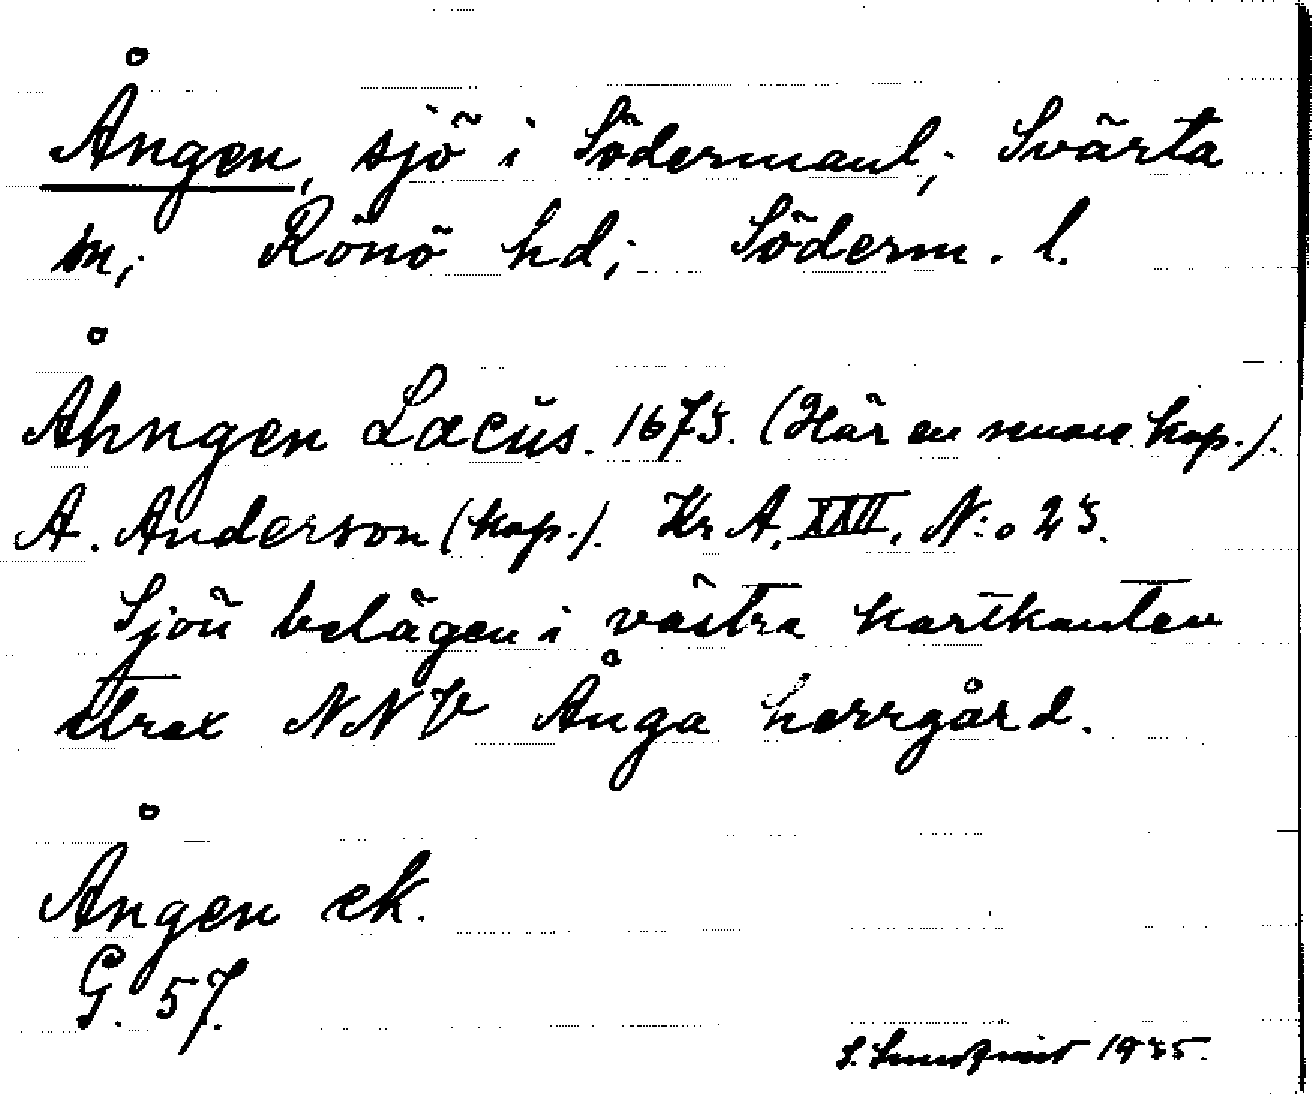 Ången, sjö i Södermanl; Svärta
sn; Rönö hd; Söderm. l.
Åhngen Lacus. 1675. (Här en senare kop.).
A. Anderson (kop.). Kr A, XXII, N:o 25.
Sjön belägen i västra kartkanten
strax NNV Ånga herrgård.
Ången ek.
G. 57.
S. Sundqvist 1935.